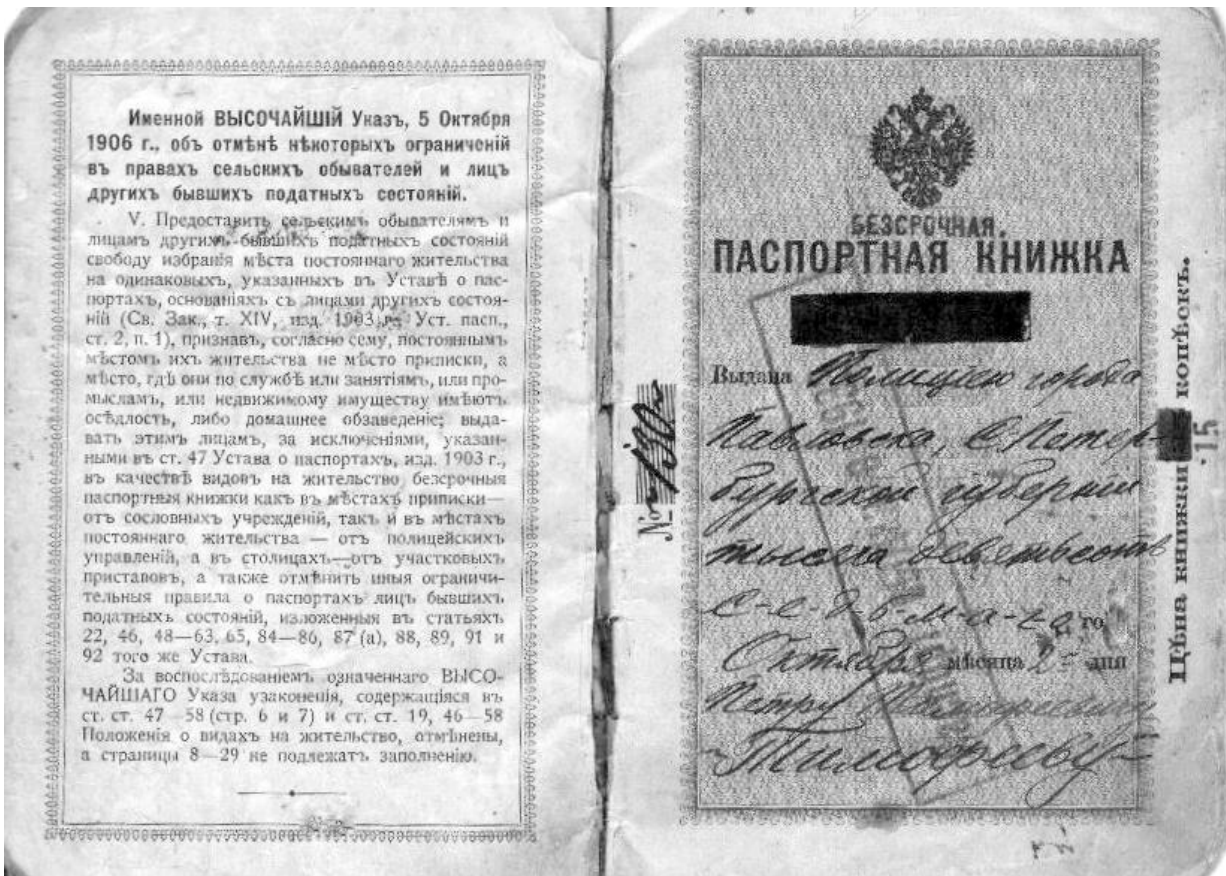 Именной ВЫСОЧАЙШІЙ Указъ, 5 Октября
1906 г., объ отмѣнѣ нѣкоторыхъ ограниченій
въ правахъ сельскихъ обывателей и лицъ
другихъ бывшихъ податныхъ состояній.
V. Предоставить сельскимъ обывателямъ и
лицамъ другихъ бывшихъ податныхъ состояній
свободу избранія мѣста постояннаго жительства
на одинаковыхъ, указанныхъ въ Уставѣ о пас-
портахъ, основаніяхъ съ лицами другихъ состоя-
ній (Св. Зак., т. XIV, изд. 1903 г. Уст. пасп.,
ст. 2, п. 1), признавъ, согласно сему, постояннымъ
мѣстомъ ихъ жительства не мѣсто приписки, а
мѣсто, гдѣ они по службѣ или занятіямъ, или про-
мысламъ, или недвижимому имуществу имѣютъ
осѣдлость, либо домашнее обзаведеніе; выда-
вать этимъ лицамъ, за исключеніями, указан-
ными въ ст. 47 Устава о паспортахъ, изд. 1903 г.,
въ качествѣ видовъ на жительство безсрочныя
паспортныя книжки какъ въ мѣстахъ приписки—
отъ сословныхъ учрежденій, такъ и въ мѣстахъ
постояннаго жительства — отъ полицейскихъ
управленій, а въ столицахъ—отъ участковыхъ
приставовъ, а также отмѣнить иныя ограничи-
тельныя правила о паспортахъ лицъ бывшихъ
податныхъ состояній, изложенныя въ статьяхъ
22, 46, 48—63, 65, 84—86, 87 (а), 88, 89, 91 и
92 того же Устава.
За воспослѣдованіемъ означеннаго ВЫСО-
ЧАЙШАГО Указа узаконенія, содержащіяся въ
ст. ст. 47—58 (стр. 6 и 7) и ст. ст. 19, 46—58
Положенія о видахъ на жительство, отмѣнены,
а страницы 8—29 не подлежатъ заполненію.
№ 130
БЕЗСРОЧНАЯ
ПАСПОРТНАЯ КНИЖКА
Выдана Полиціею города
Павловска, С.Петер-
бургской губерніи
тысяча девятьсотъ
с-е-д-ь-м-а-го го
Октября мѣсяца 2 дня
Петру
Тимофееву
Цѣна книжки 15 копѣекъ.